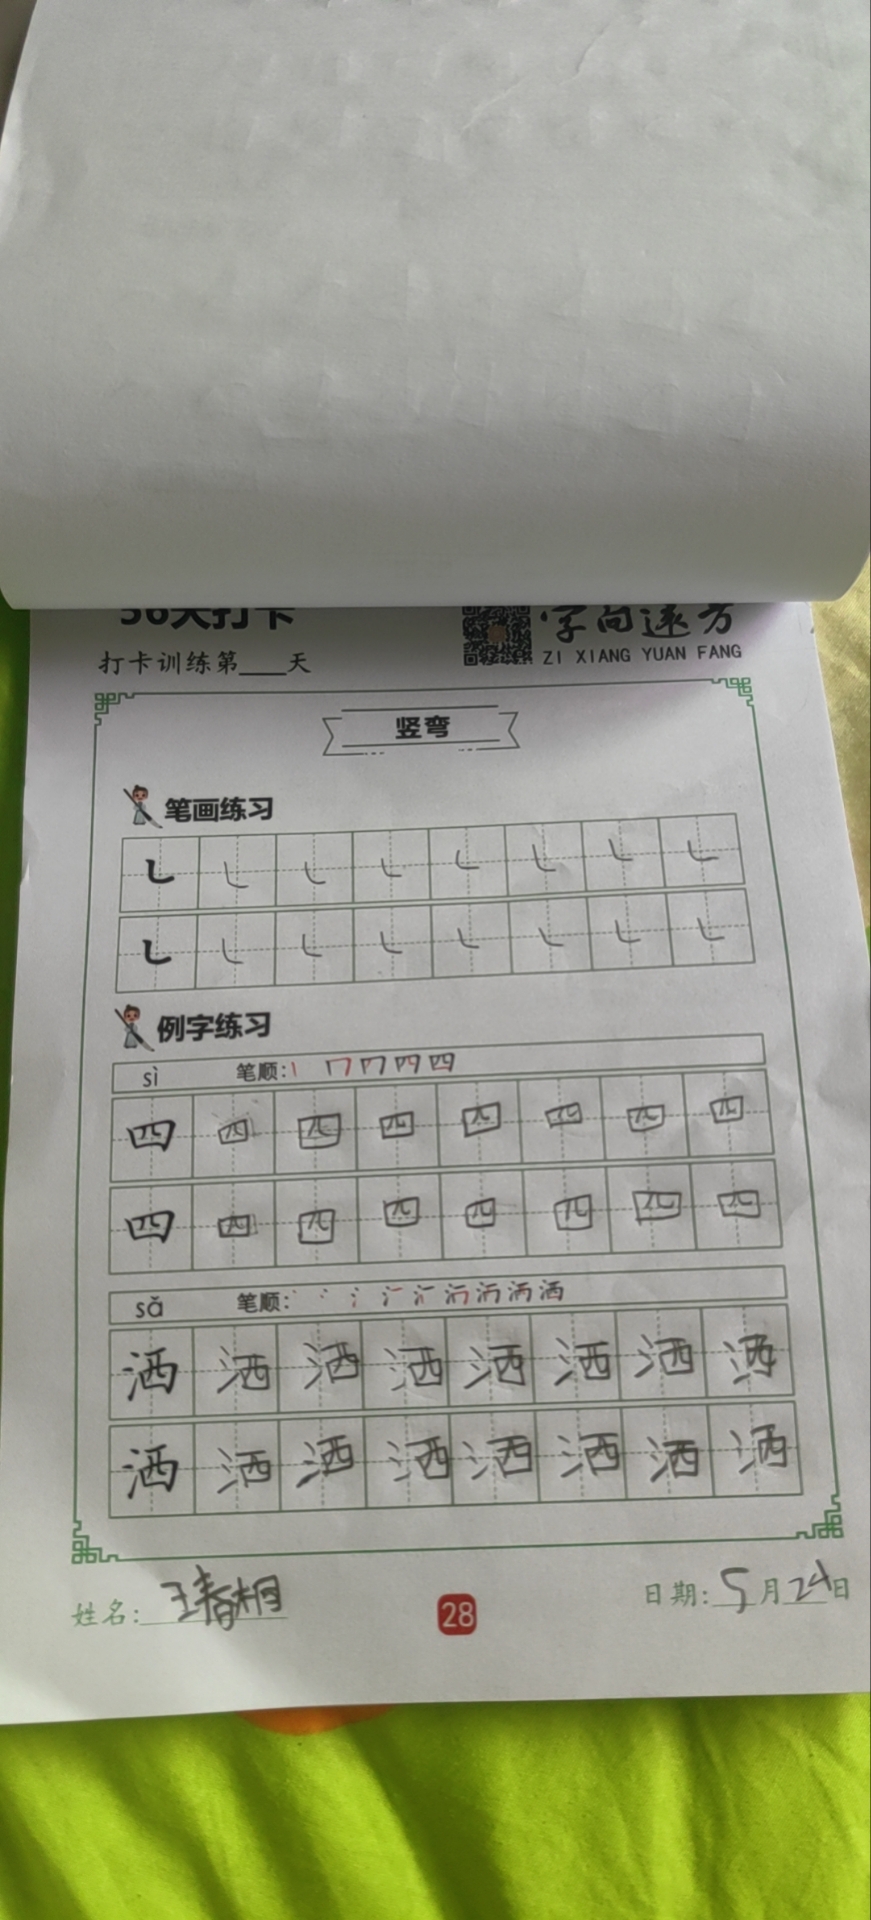 56天打卡
字向远方
打卡训练第___天
ZI XIANG YUAN FANG
竖弯
笔画练习
㇄ ㇄ ㇄ ㇄ ㇄ ㇄ ㇄ ㇄
㇄ ㇄ ㇄ ㇄ ㇄ ㇄ ㇄ ㇄
例字练习
sì 笔顺:
四 四 四 四 四 四 四 四
四 四 四 四 四 四 四 四
sǎ 笔顺:
洒 洒 洒 洒 洒 洒 洒 洒
洒 洒 洒 洒 洒 洒 洒 洒
姓名: 王春桐
28
日期: 5月24日